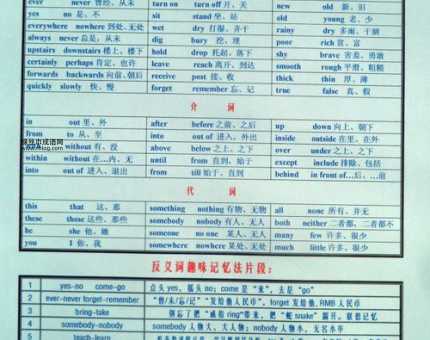 ever never 曾经、从未 turn on turn off 开、关 new old 新、旧
yes no 是、不 sit stand 坐、站 old young 老、少
everywhere nowhere 到处、无处 wet dry 打湿、弄干 rainy dry 多雨、干燥
always never 总是；从未 dig bury 挖、埋 poor rich 贫、富
upstairs downstairs 楼上、楼下 hold drop 托起、落下 shy brave 害羞、勇敢
certainly perhaps 肯定、也许 leave reach 离开、到达 smooth rough 平滑、粗糙
forwards backwards 向前、朝后 receive post 接、收 thick thin 厚、薄
quickly slowly 快、慢 forget remember 忘、记 true false 真、假
介 词
in out 里、外 after before 之前、之后 up down 向上、朝下
from to 从、至 into out of 进入、外出 inside outside 在里、在外
without 有、没 above below 之上、之下 over under 之上、之下
within without 在…内、无 until from 直到、始于 except include 排除、包括
into out of 进入、退出 from till 始于、直到 behind in front of…后、…前
代 词
this that 这、那 something nothing 有物、无物 all none 所有、并无
these those 这些、那些 somebody nobody 有人、无人 both neither 二者都、二者都不
he she 他、她 someone no one 某人、无人 many few 许多、很少
you I 你、我 somewhere nowhere 某处、无处 much little 许多、很少
反义词趣味记忆法片段：
1 yes-no come-go 点头 yes，摇头 no；come 是“来”，去是“go”
2 ever-never forget-remember “曾/未/忘/记” “发给他人民币”，forget 发给他，RMB 人民币
3 bring-take 别忘了把“戒指 ring”带来，把“蛇 snake”
4 somebody-nobody somebody 人物大，大人物；nobody 人物小，无名小卒
5 teach-learn